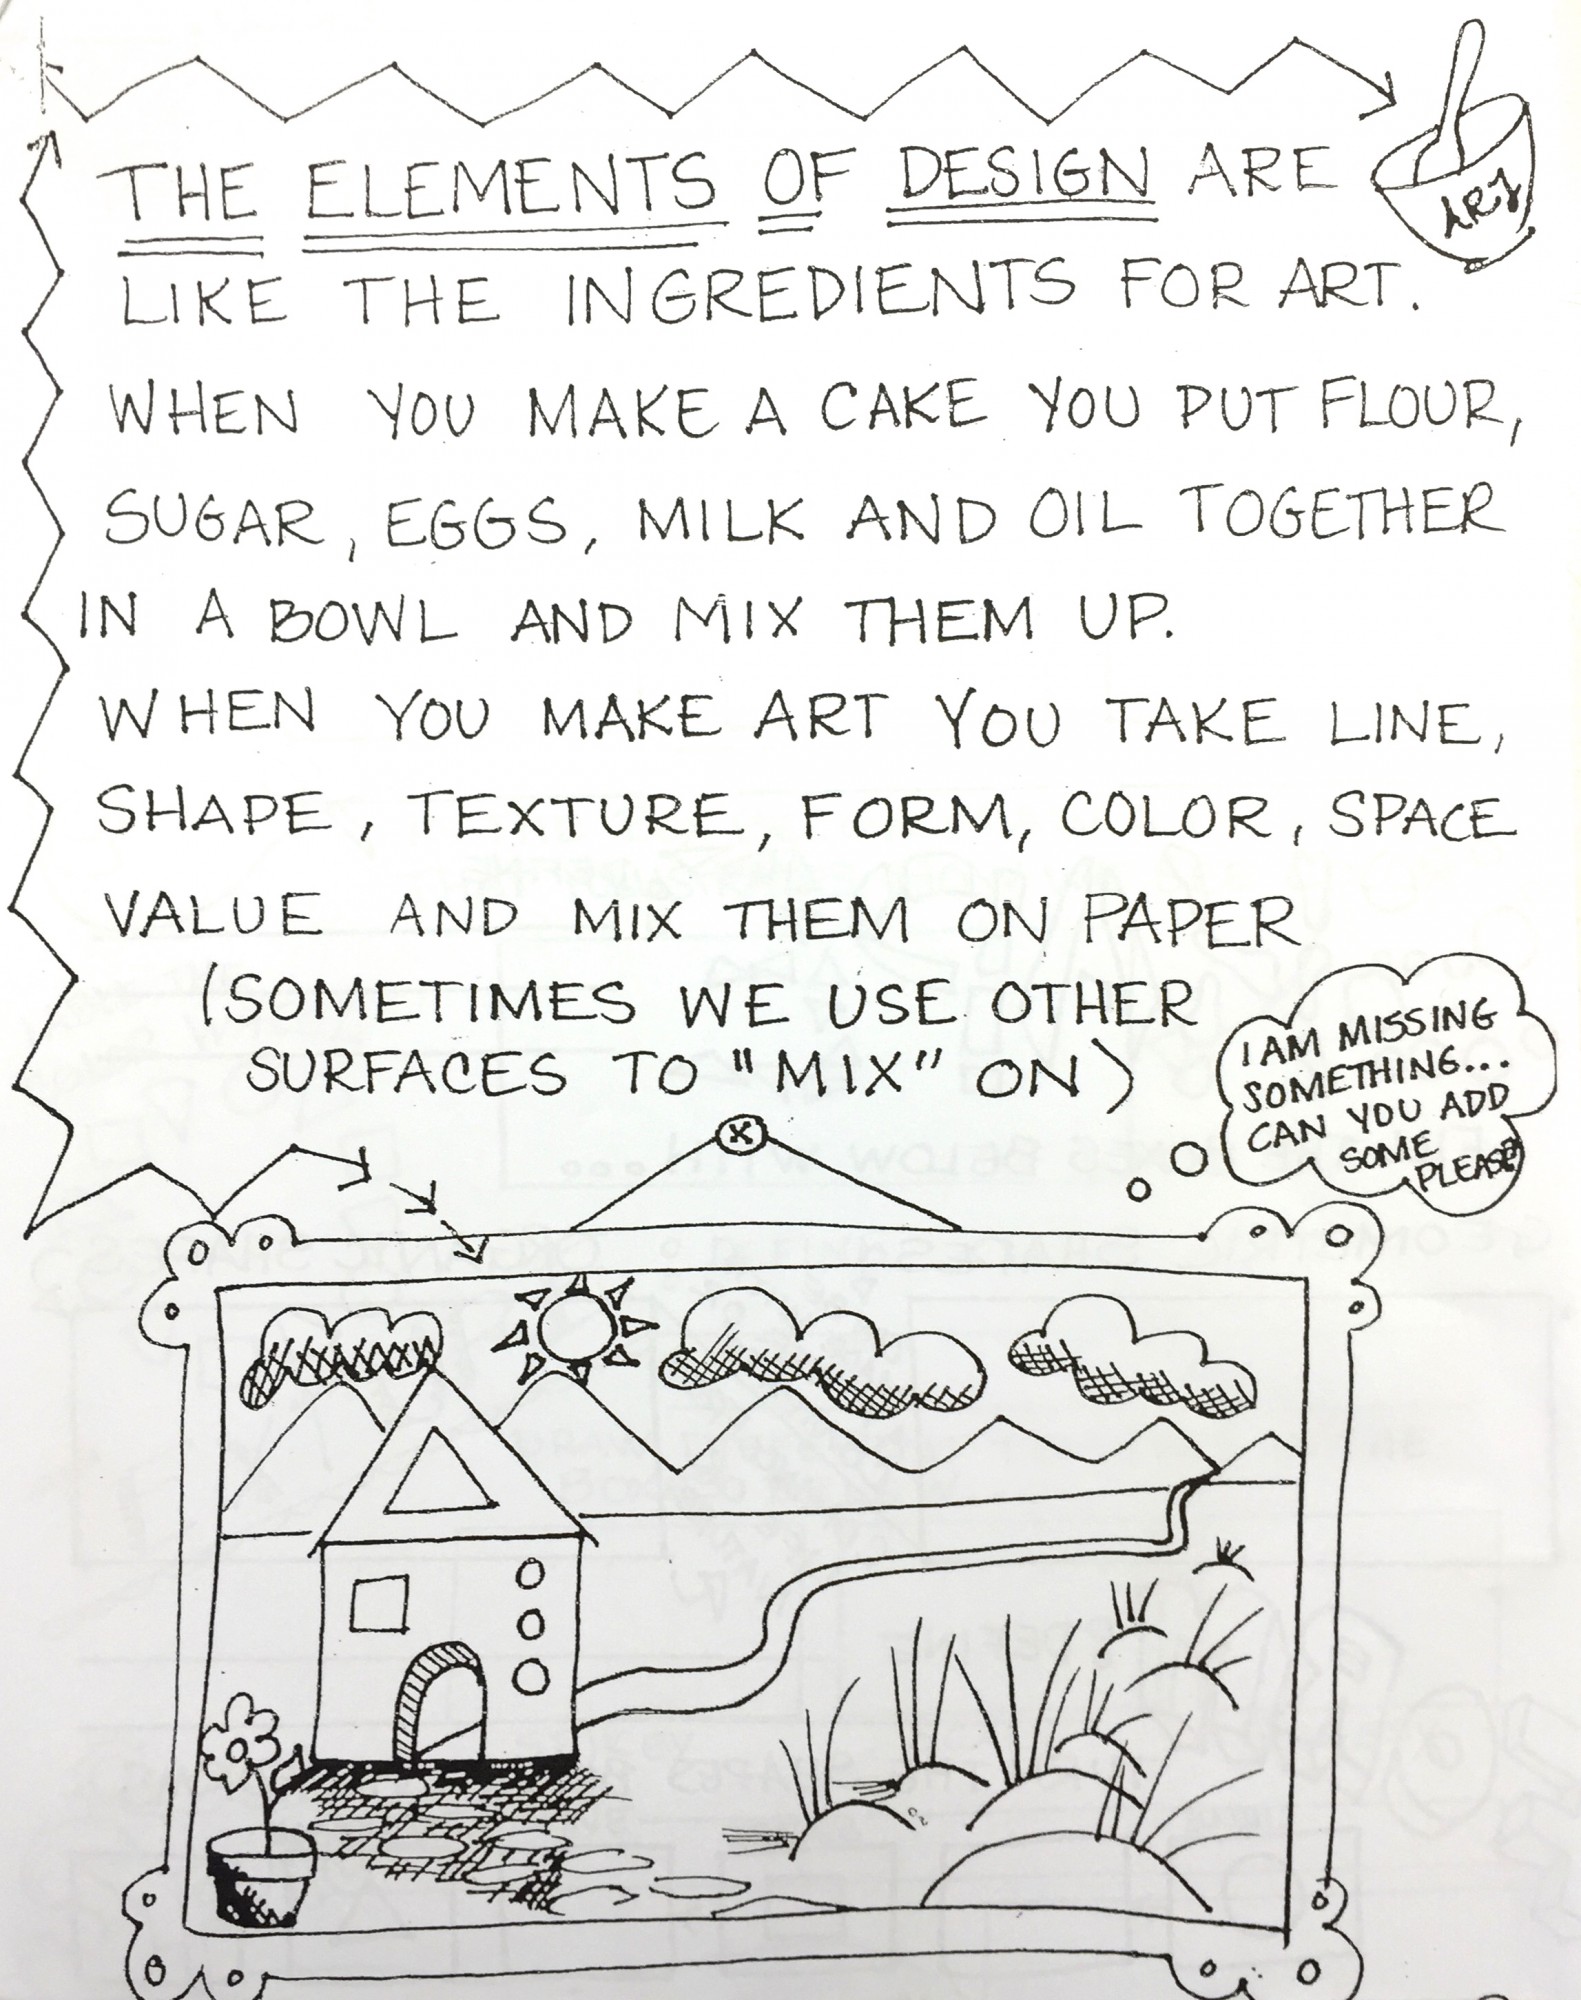 THE ELEMENTS OF DESIGN ARE
ART
LIKE THE INGREDIENTS FOR ART.
WHEN YOU MAKE A CAKE YOU PUT FLOUR,
SUGAR, EGGS, MILK AND OIL TOGETHER
IN A BOWL AND MIX THEM UP.
WHEN YOU MAKE ART YOU TAKE LINE,
SHAPE, TEXTURE, FORM, COLOR, SPACE
VALUE AND MIX THEM ON PAPER
(SOMETIMES WE USE OTHER
SURFACES TO "MIX" ON)
I AM MISSING
SOMETHING...
CAN YOU ADD
SOME
PLEASE?